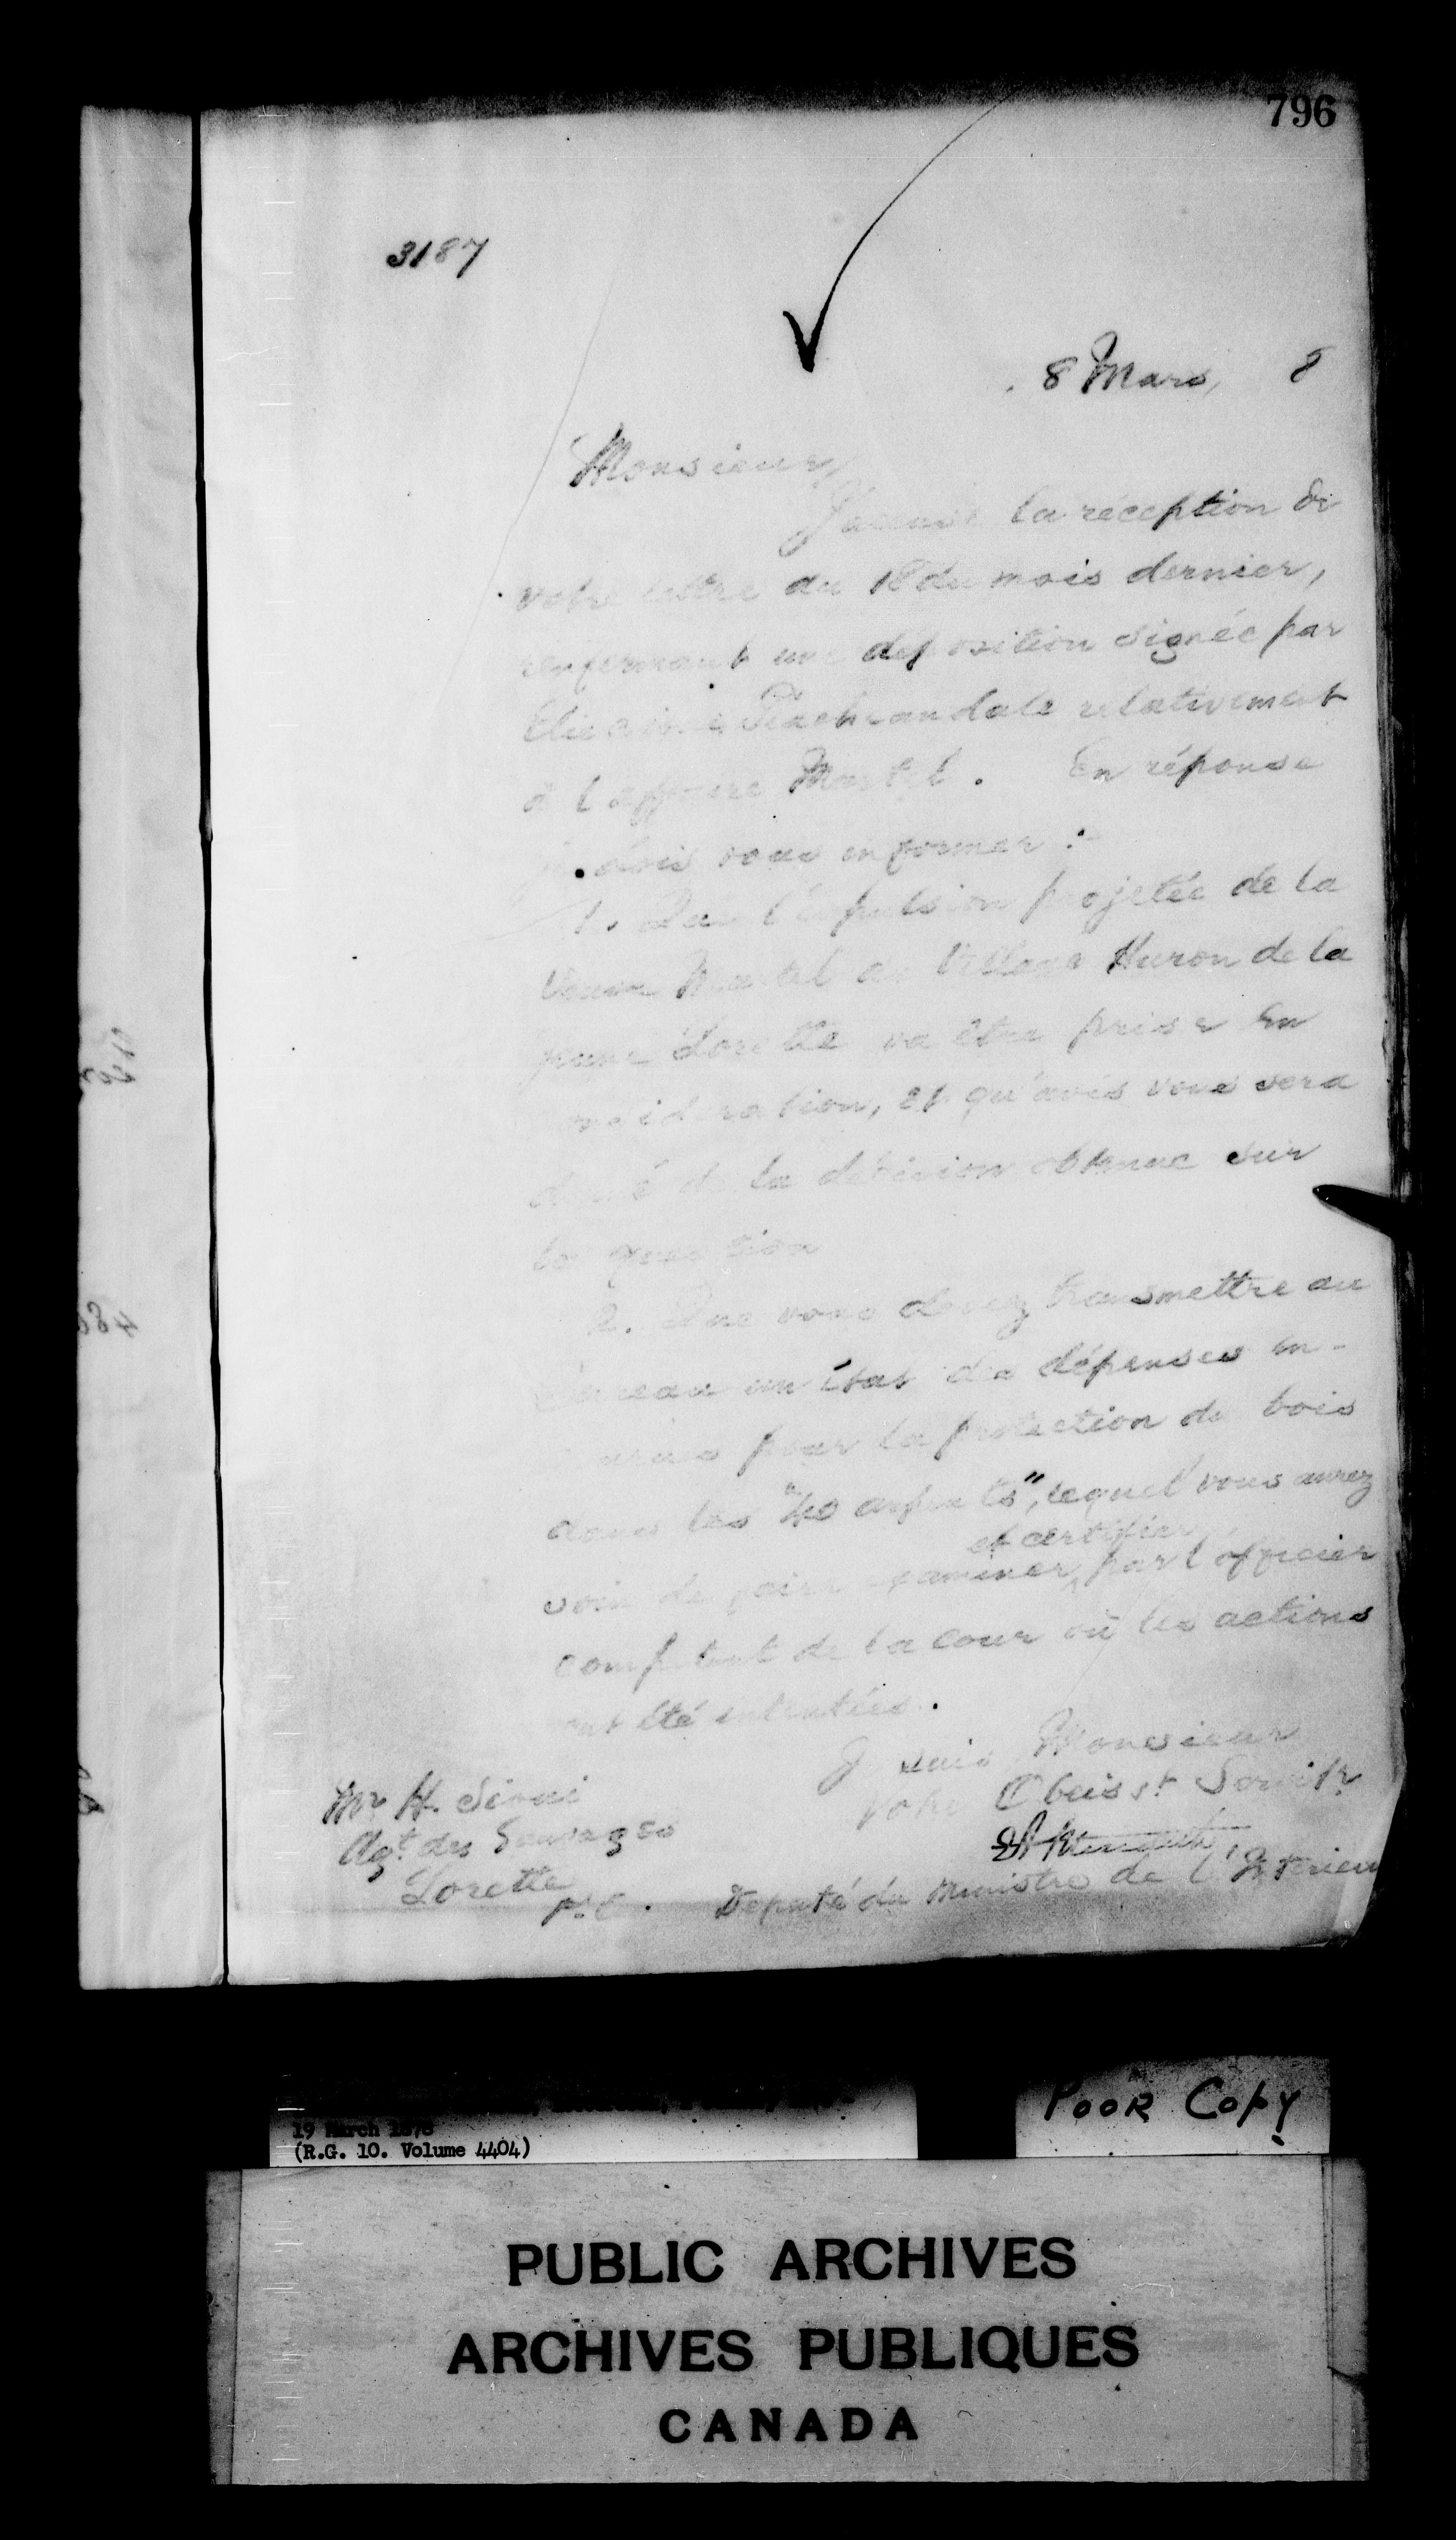 796
3187
8 Mars, 8
Monsieur,
J'accuse la réception de
votre lettre du 18 du mois dernier,
renfermant une déposition signée par
relativement
à l'affaire Martel. En réponse
je dois vous informer :-
1. Que l'expulsion projetée de la
Veuve Martel du Village Huron de la
jeune Lorette va être prise en
considération, et qu'avis vous sera
donné de la décision obtenue sur
la question
2. Que vous devez transmettre au
Bureau un état des dépenses en-
courues pour la protection du bois
dans les "40 arpents", lequel vous aurez
et certifier
soin de faire examiner par l'officier
compétent de la cour où les actions
ont été intentées.
Je suis, Monsieur
Votre Obéisst. Servitr.
Mr H. Sioui
Agt. des Sauvages
Lorette
P.Q. Député du Ministre de l'Intérieur
19 March 1878
(R.G. 10. Volume 4404)
POOR COPY
PUBLIC ARCHIVES
ARCHIVES PUBLIQUES
CANADA